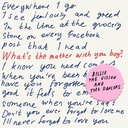 Everywhere I go
I see jealousy and greed
in line at the grocery
store on every facebook
post that I read
What's the matter with you boy?
I know you need
when you've been
have your forgotten
good it feels to
someone when you say?
Don't you ever forget to love me
I'll never forget to love you
BILLIE
THE VISION
AND THE DANCERS